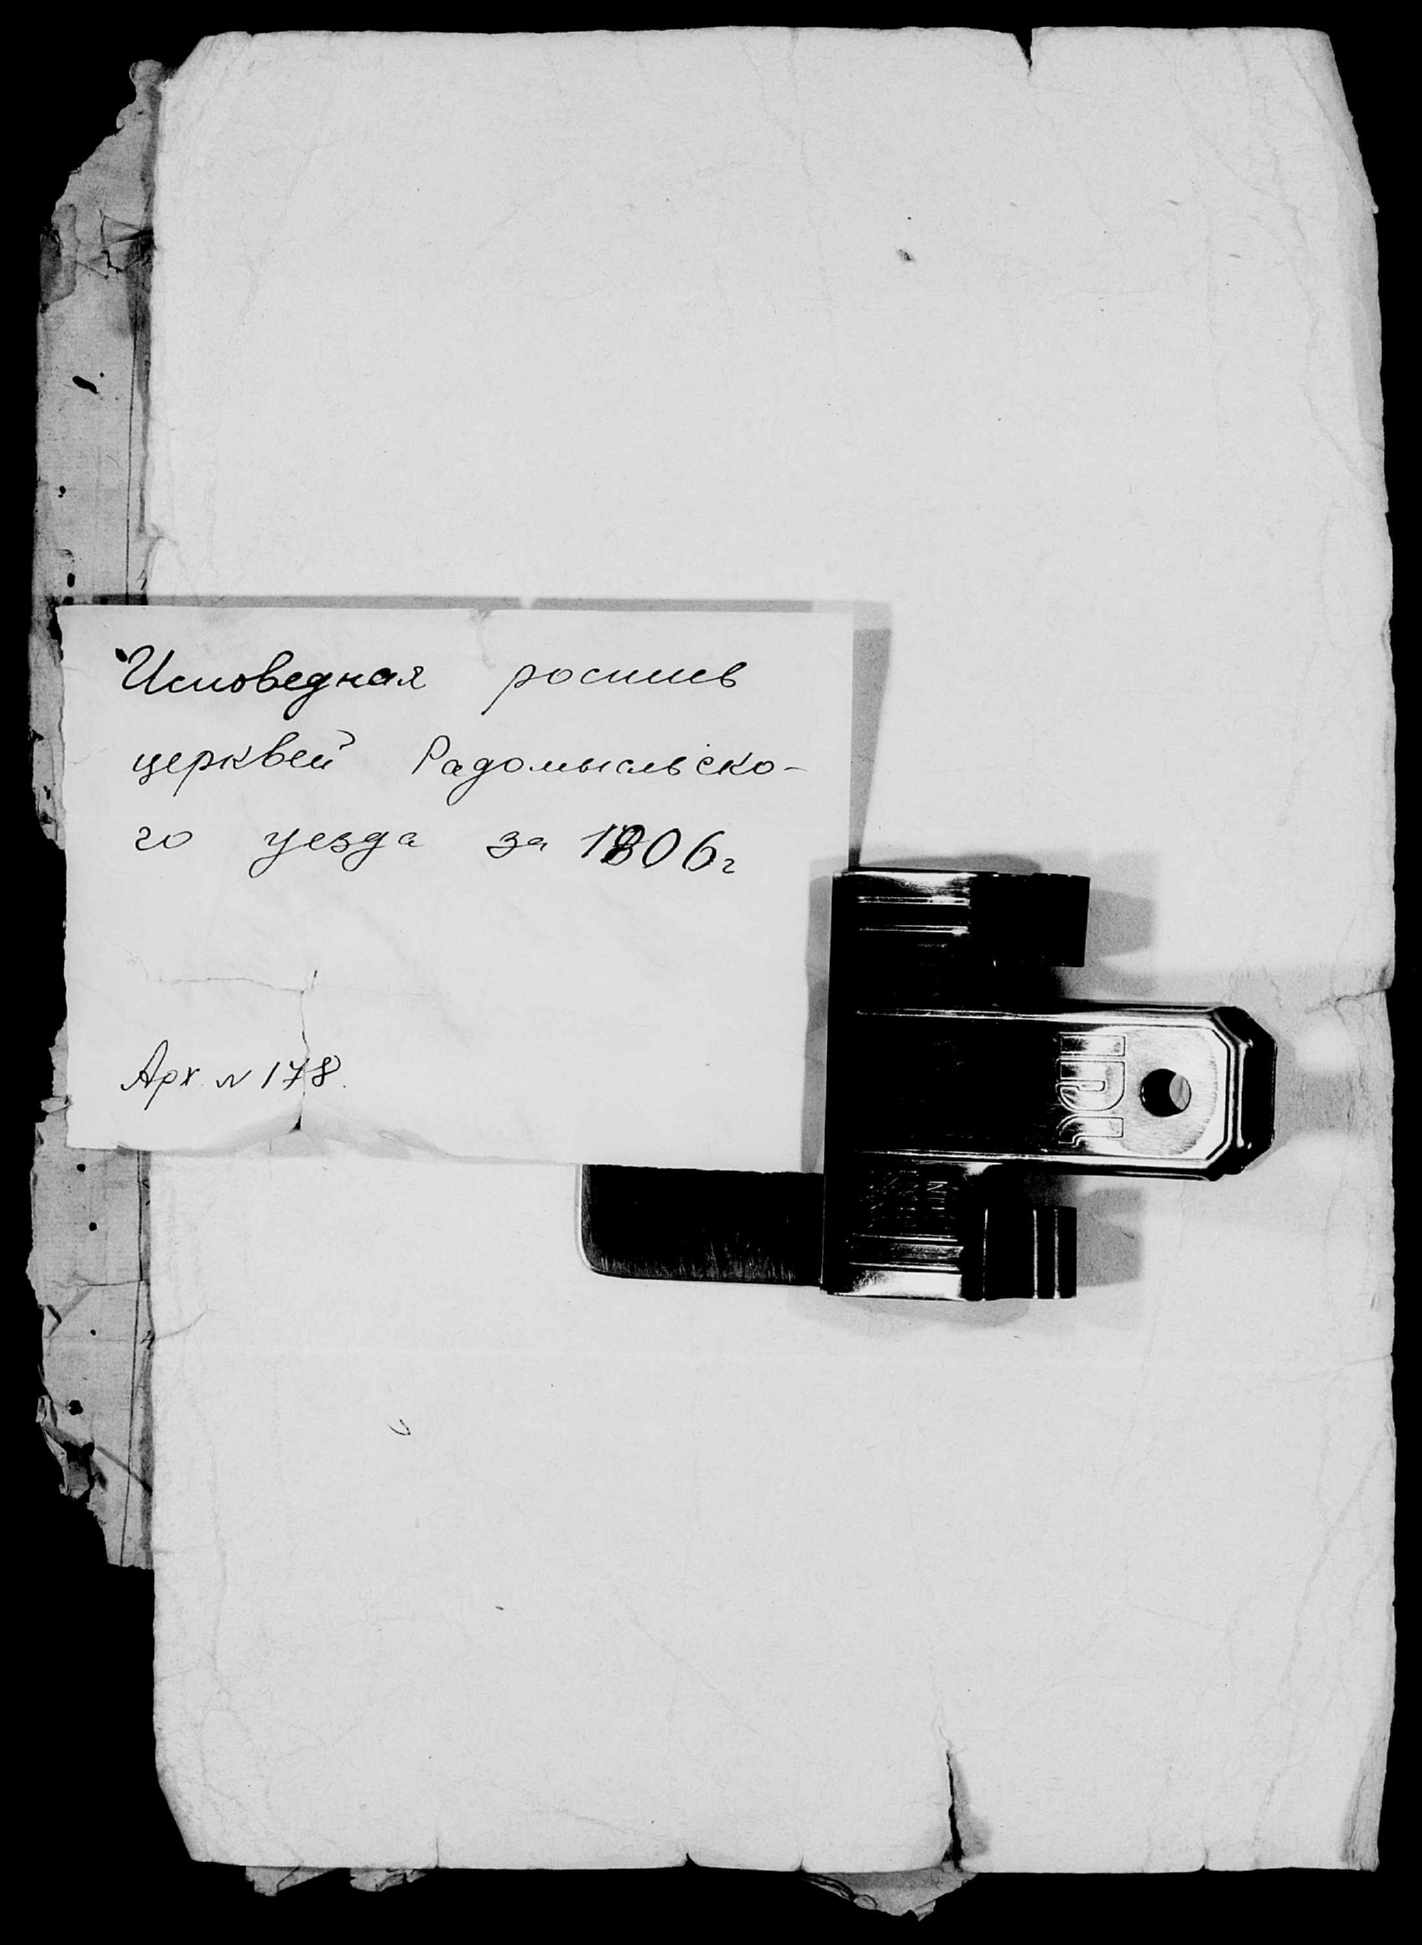 Исповедная роспись
церквей Радомысльско-
го уезда за 1806 г
Арх. N 178.